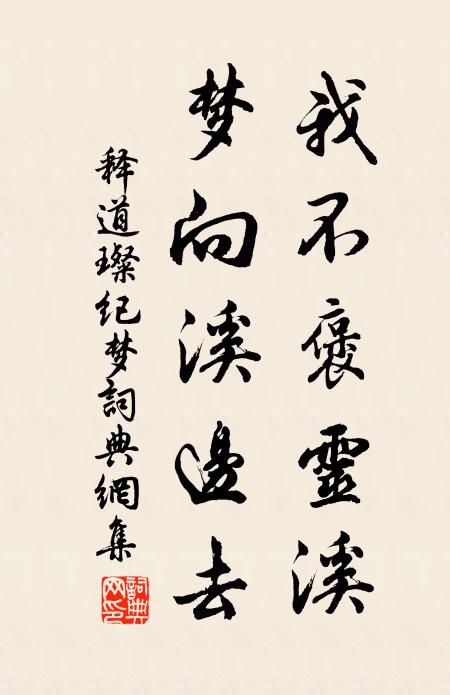 我不褒靈溪
梦向溪邊去
释道璨纪梦詞典網集
詞典网印